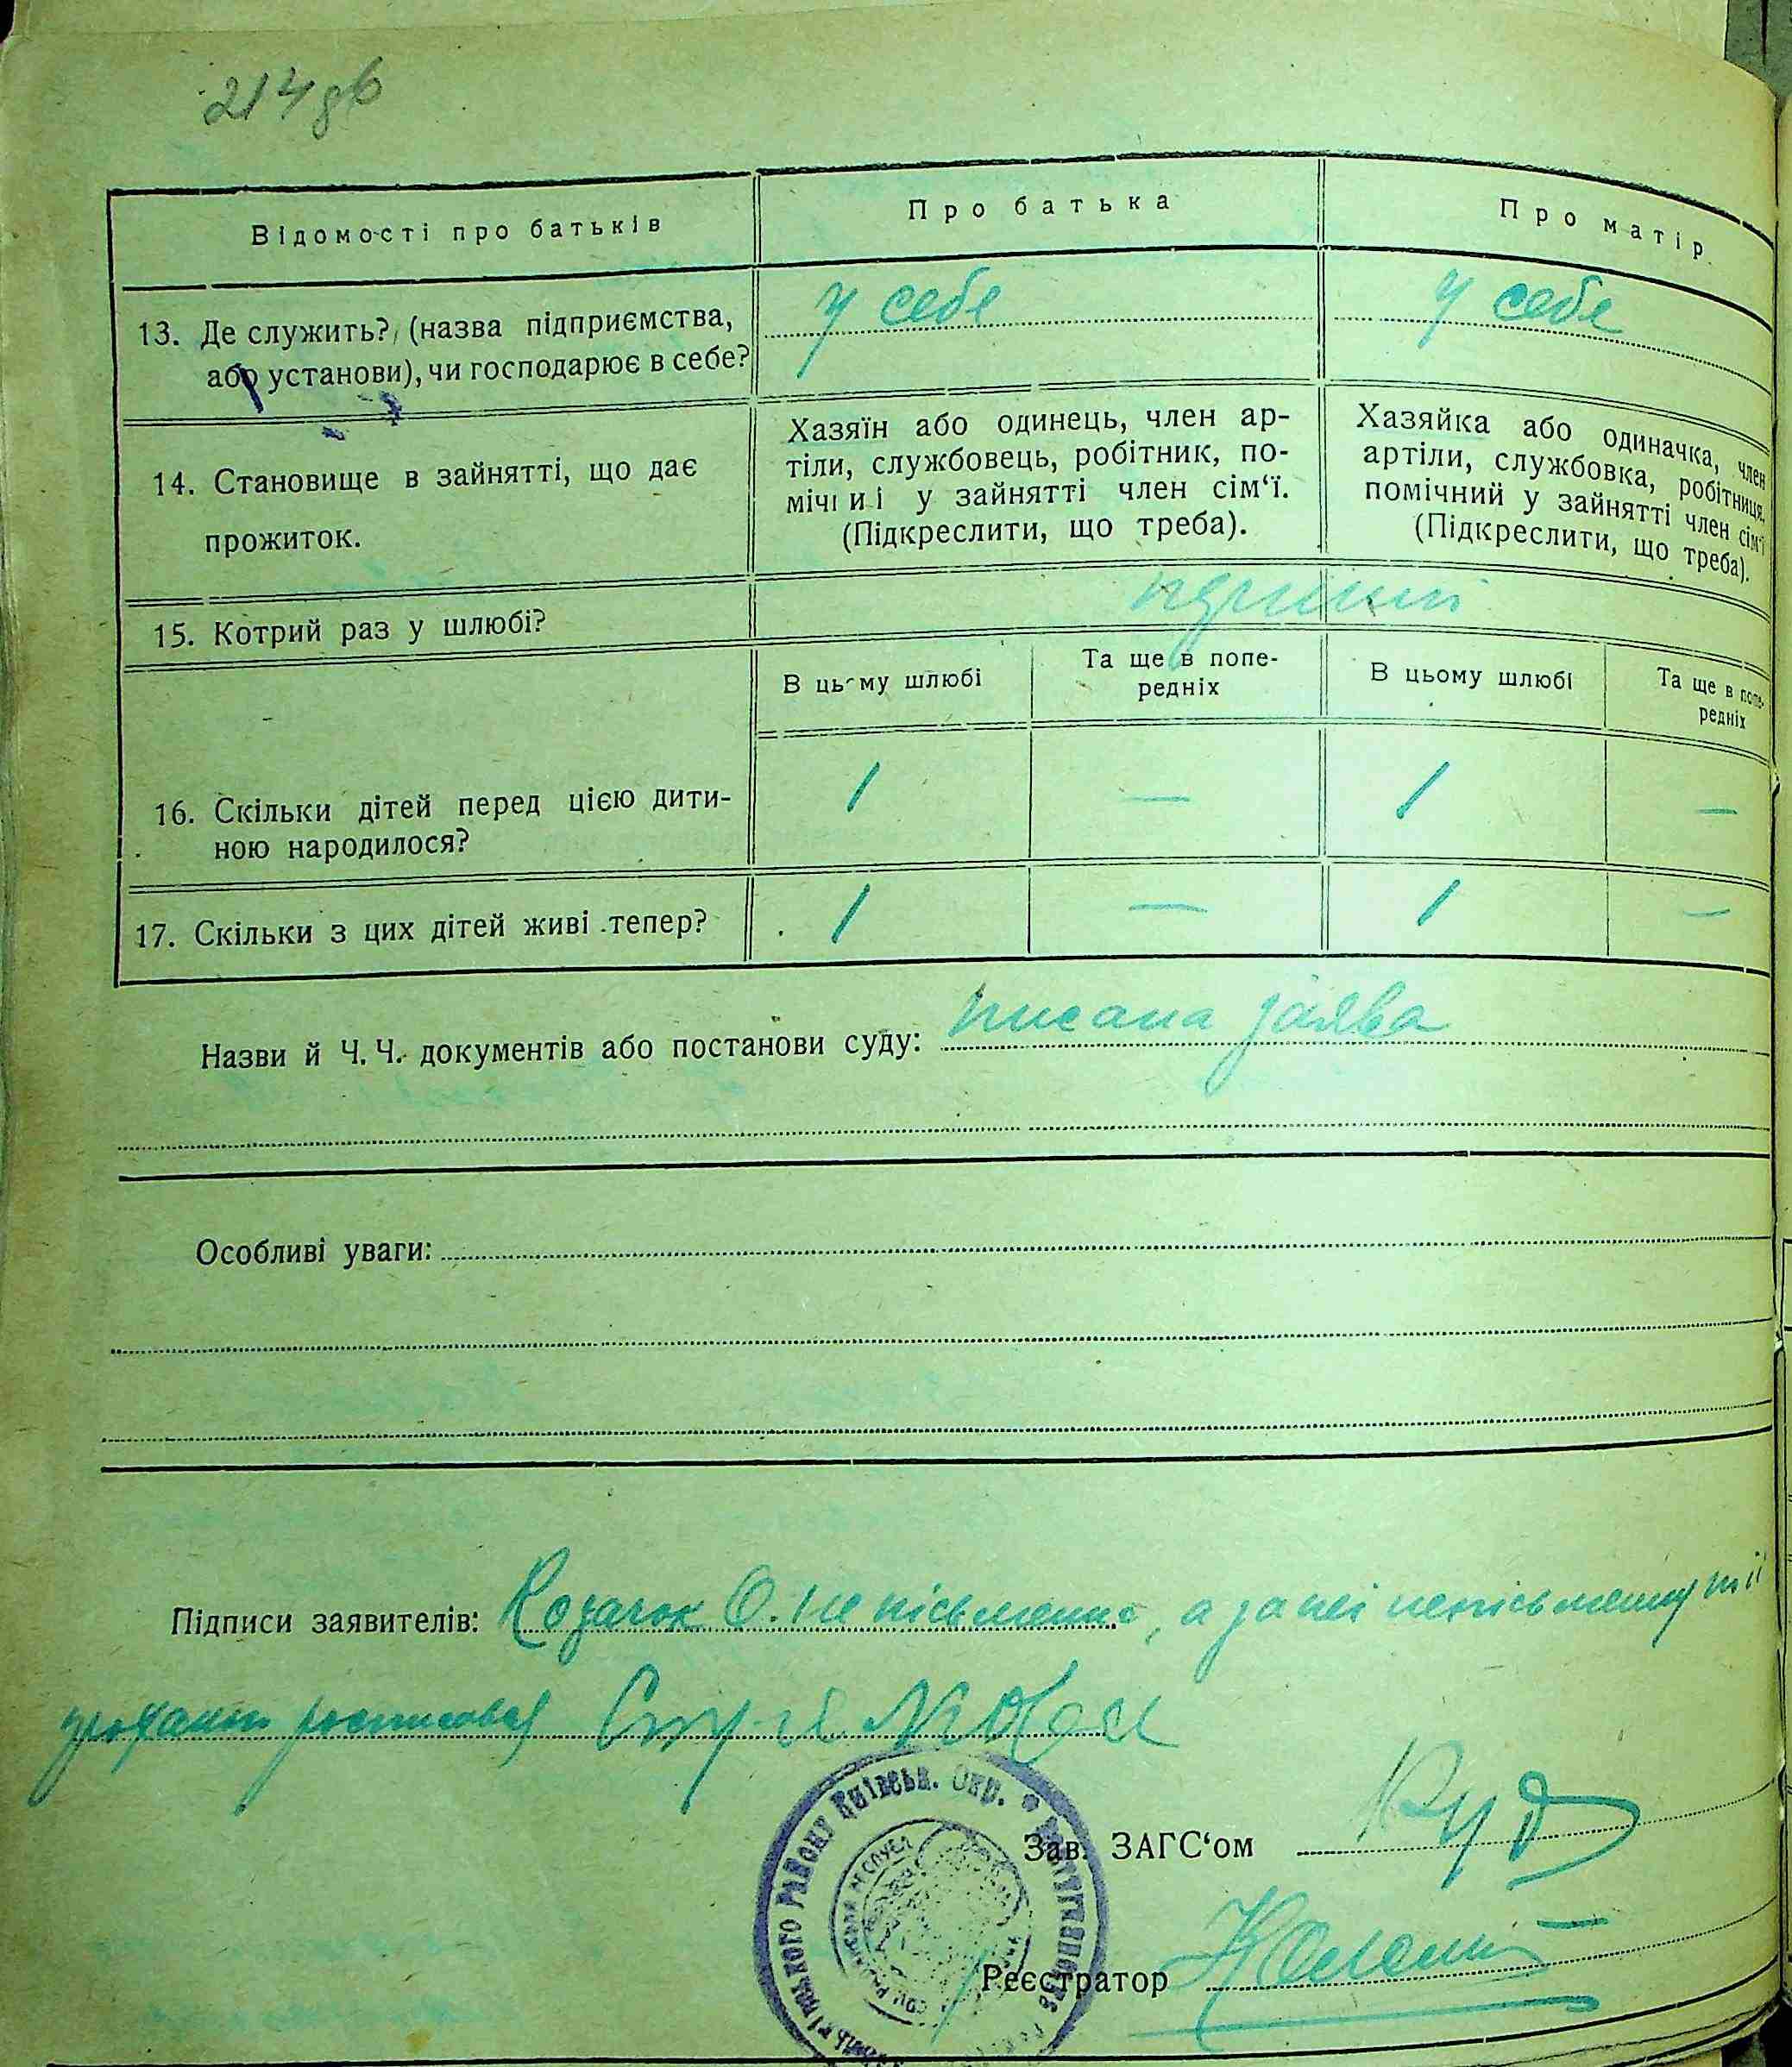 214 зв
Відомості про батьків
Про батька
Про матір
13. Де служить? (назва підприємства,
або установи), чи господарює в себе?
у себе
у себе
14. Становище в зайнятті, що дає
прожиток.
Хазяїн або одинець, член ар-
тіли, службовець, робітник, по-
мічниі у зайнятті член сім‘ї.
(Підкреслити, що треба).
Хазяйка або одиначка, член
артіли, службовка, робітниця,
помічний у зайнятті член сім‘ї
(Підкреслити, що треба).
15. Котрий раз у шлюбі?
В цьому шлюбі
Та ще в попе-
редніх
В цьому шлюбі
Та ще в попе-
редніх
16. Скільки дітей перед цією дити-
ною народилося?
1 — 1 —
17. Скільки з цих дітей живі тепер?
1 — 1 —
Назви й Ч. Ч. документів або постанови суду: писана заява
Особливі уваги:
Підписи заявителів: Козачок О. не письменна, а за неї неписьменну її
Київськ. Окр.
Зав. ЗАГС‘ом
Реєстратор